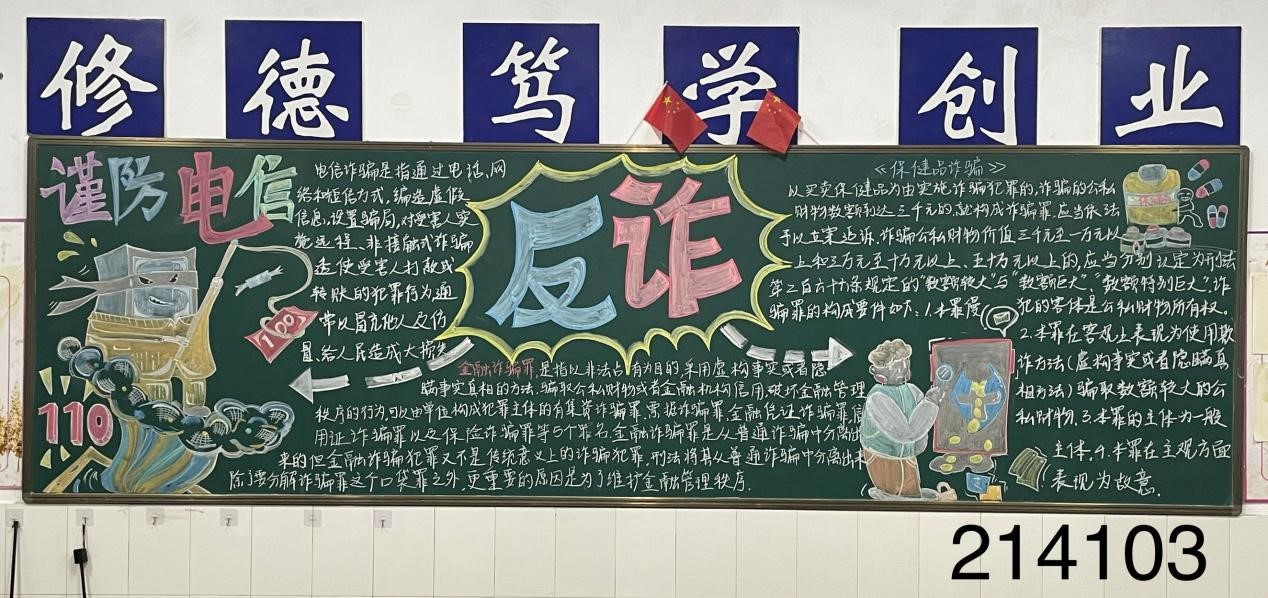 修 德 笃 学 创 业
谨防电信
反诈
电信诈骗是指通过电话、网
络和短信方式,编造虚假
信息,设置骗局,对受害人实
施远程、非接触式诈骗
使受害人打款或
转账的犯罪行为通
常以冒充他人及仿
给人民造成大损失
100
110
金融诈骗罪,是指以非法占有为目的,采用虚构事实或者隐
瞒事实真相的方法,骗取公私财物或者金融机构信用,破坏金融管理
秩序的行为,可以由单位构成犯罪主体的有集资诈骗罪,票据诈骗罪,金融凭证诈骗罪信
用证诈骗罪以及保险诈骗罪等5个罪名.金融诈骗罪是从普通诈骗中分离出
来的但金融诈骗犯罪又不是传统意义上的诈骗犯罪.刑法将其从普通诈骗中分离出来
除了要分解诈骗罪这个口袋罪之外,更重要的原因是为了维护金融管理秩序.
《保健品诈骗》
以买卖保健品为由实施诈骗犯罪的,诈骗的公私
财物数额到达三千元的,就构成诈骗罪,应当依法
予以立案追诉.诈骗公私财物价值三千元至一万元以
上和三万元至十万元以上、五十万元以上的,应当分别认定为刑法
第二百六十六条规定的“数额较大”与“数额巨大”、“数额特别巨大”,诈
骗罪的构成要件如下:1.本罪侵
犯的客体是公私财物所有权.
2.本罪在客观上表现为使用欺
诈方法(虚构事实或者隐瞒真
相方法)骗取数额较大的公
私财物.3.本罪的主体为一般
主体.4.本罪在主观方面
表现为故意.
214103